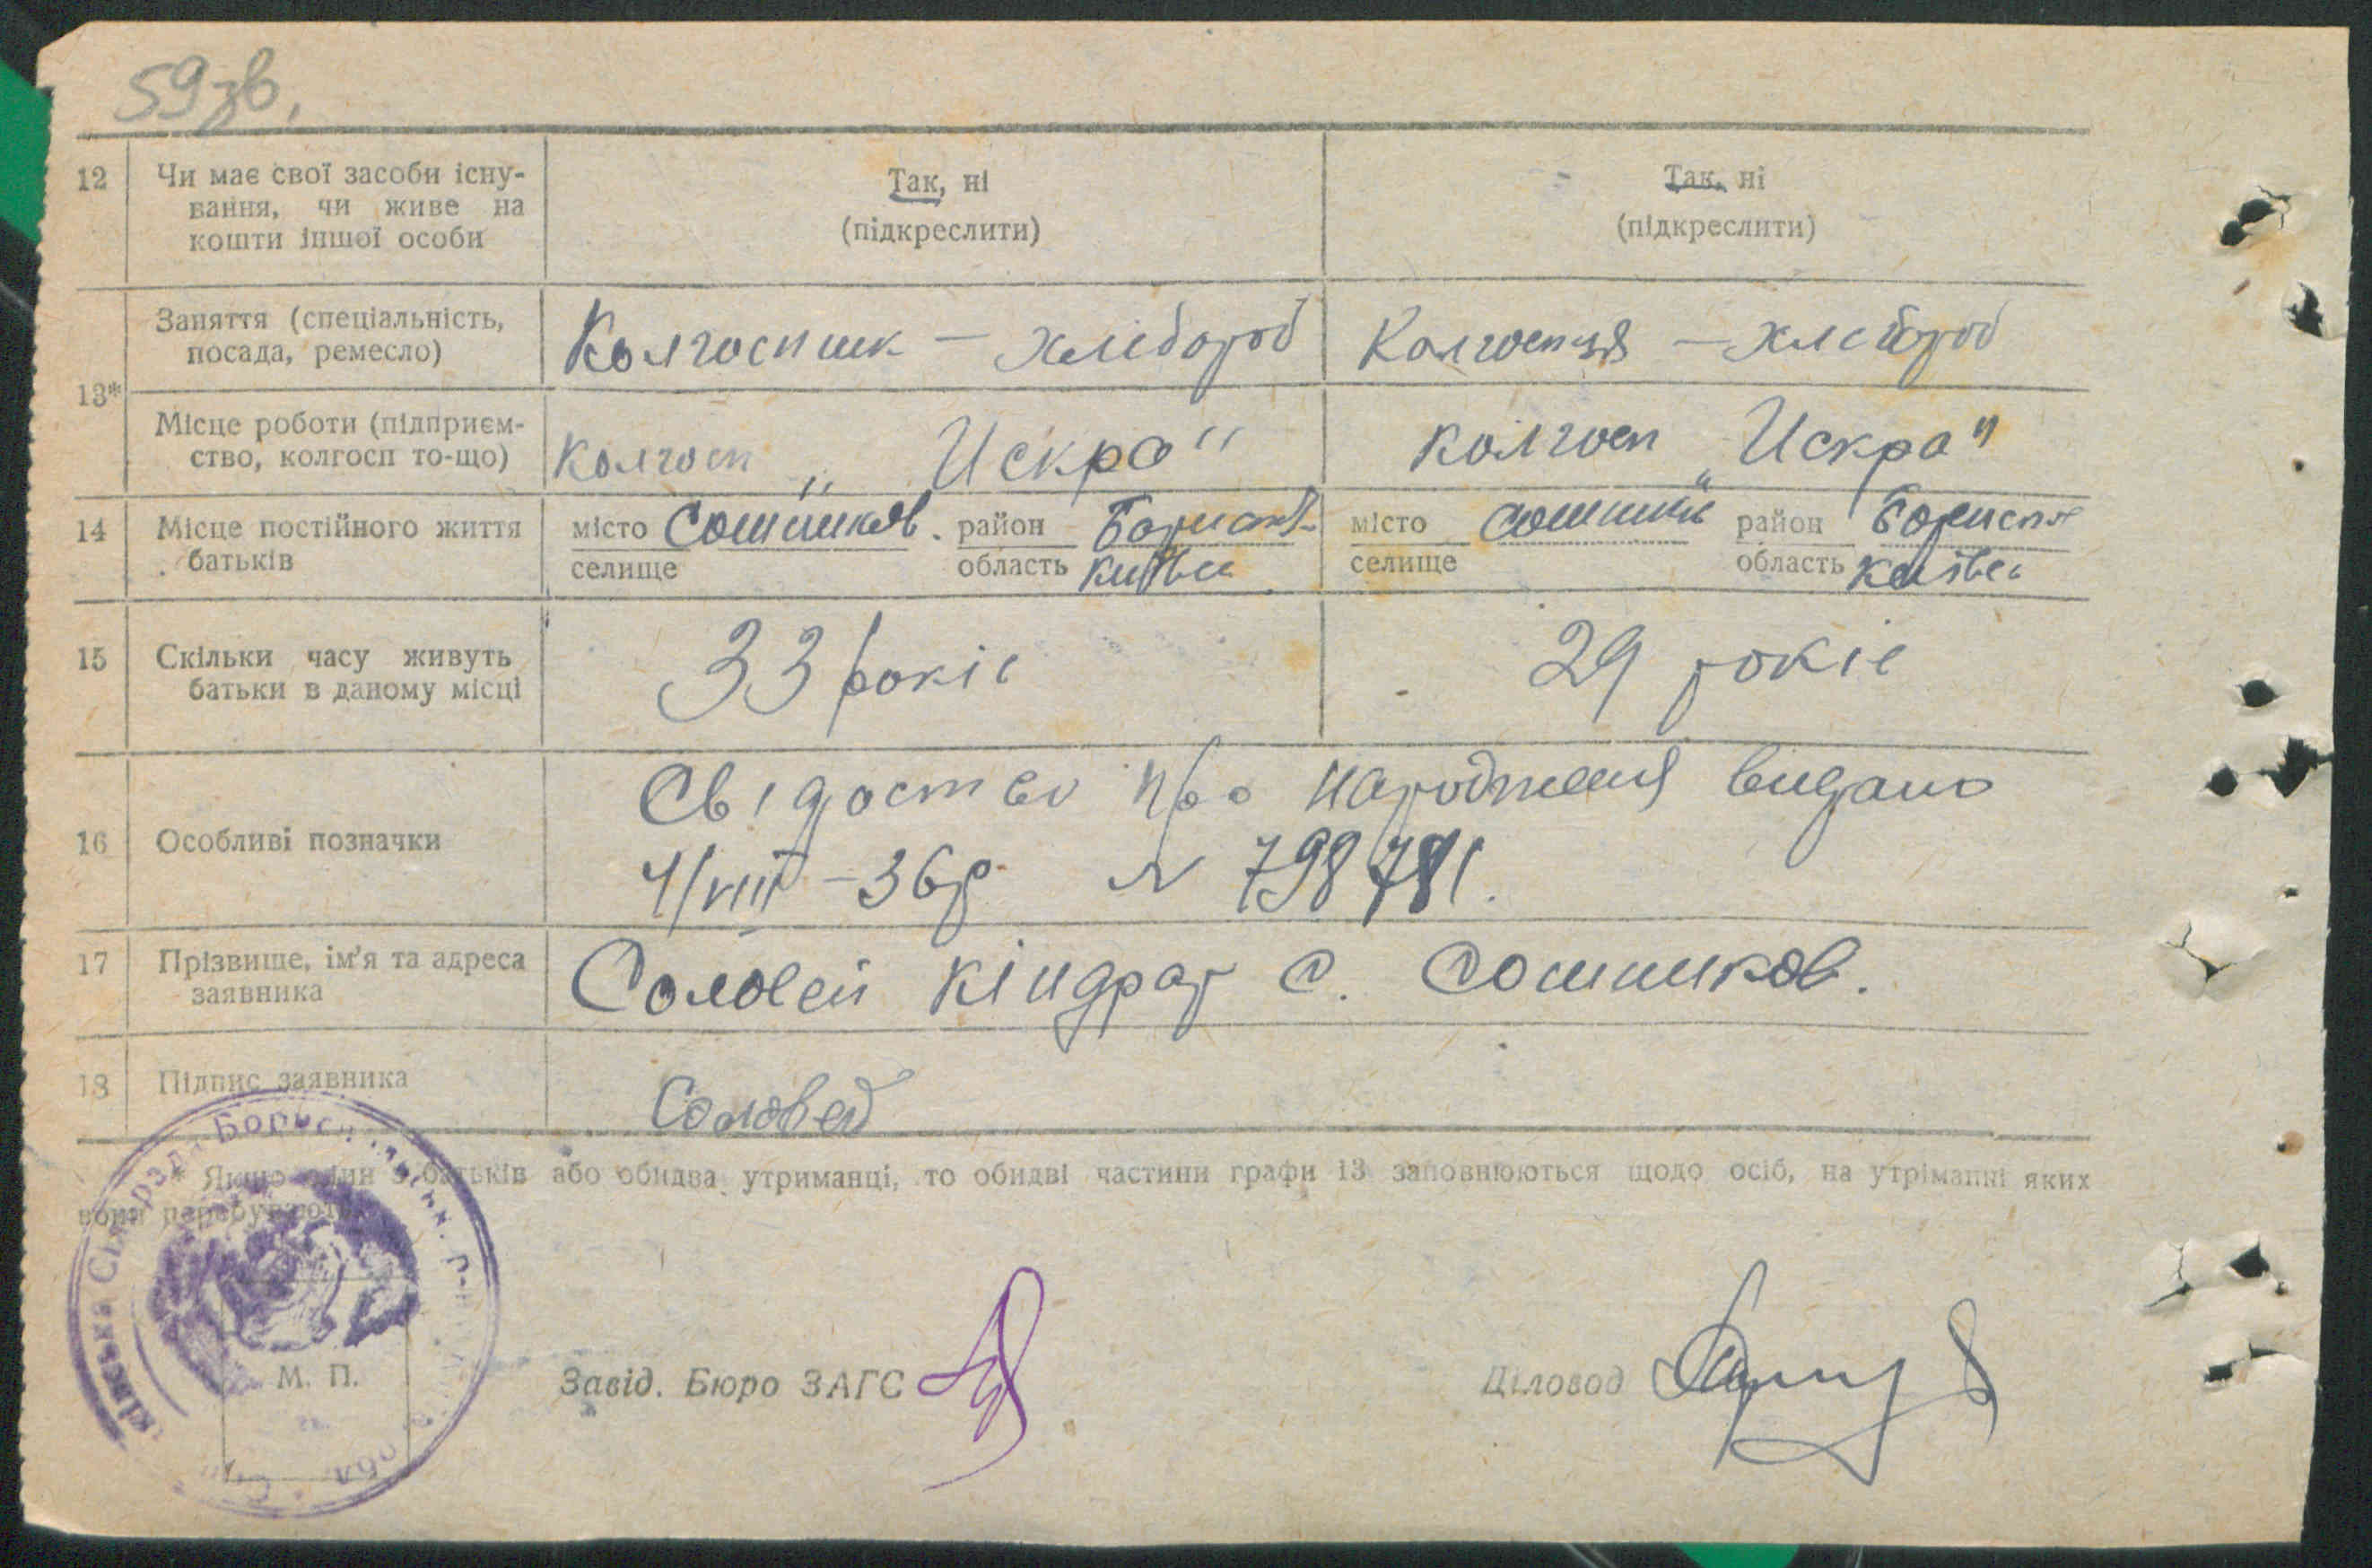 59зв.
12 Чи має свої засоби існу- Так, ні Так, ні
вання, чи живе на (підкреслити) (підкреслити)
кошти іншої особи
13* Заняття (спеціальність, Колгоспник – хлібороб Колгоспця – хлібороб
посада, ремесло)
Місце роботи (підприєм- колгосп „Искра" колгосп „Искра"
ство, колгосп то-що)
14 Місце постійного життя місто Сошников. район Борисп місто Сошників район Борисп
батьків селище область Київсь селище область Київсь
15 Скільки часу живуть 33 років 29 років
батьки в даному місці
16 Особливі позначки Свідоство про народження видано
4/VIII–36р. N 798781.
17 Прізвище, ім'я та адреса Соловей Кіндрат с. Сошников.
заявника
18 Підпис заявника Соловей
* Якщо один з батьків або обидва утриманці, то обидві частини графи 13 заповнюються щодо осіб, на утріманні яких
вони перебувають.
М. П. Завід. Бюро ЗАГС Діловод